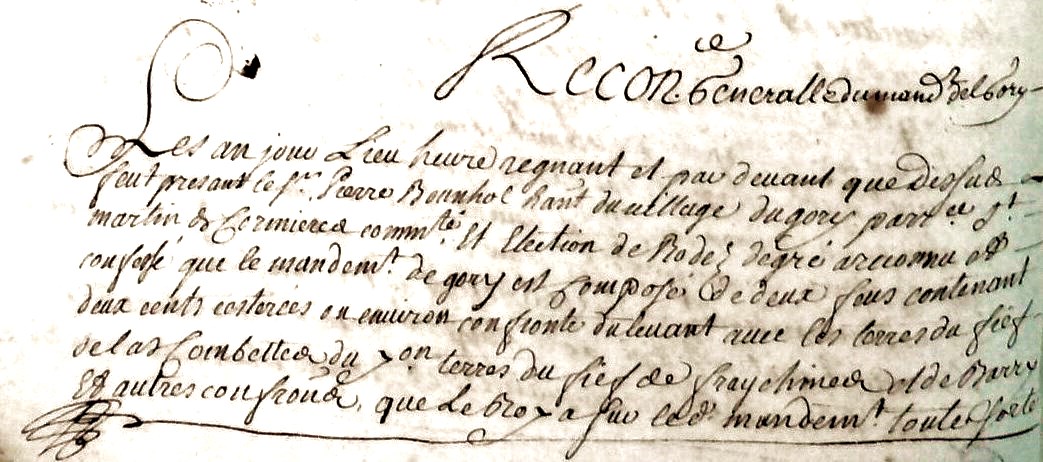 Recon.ce Generalle du mand.t del Gory
Les an jour Lieu heure regnant et par devant que Dessus
feut presant le s.r Pierre Bounhol hant du village du gory parr.ce s.t
martin de Cormieres comm.té Et Election de Rodez degré a reconnu et
confessé que le mandem.t de gory est Composé de deux feus contenant
deux cents cesterées ou environ confronte du levant avec les terres du fief
de las Combettes du terres du fief de fraychines et de Barry
Et autres confron.s, que Le Roy a sur led. mandem.t toute sorte